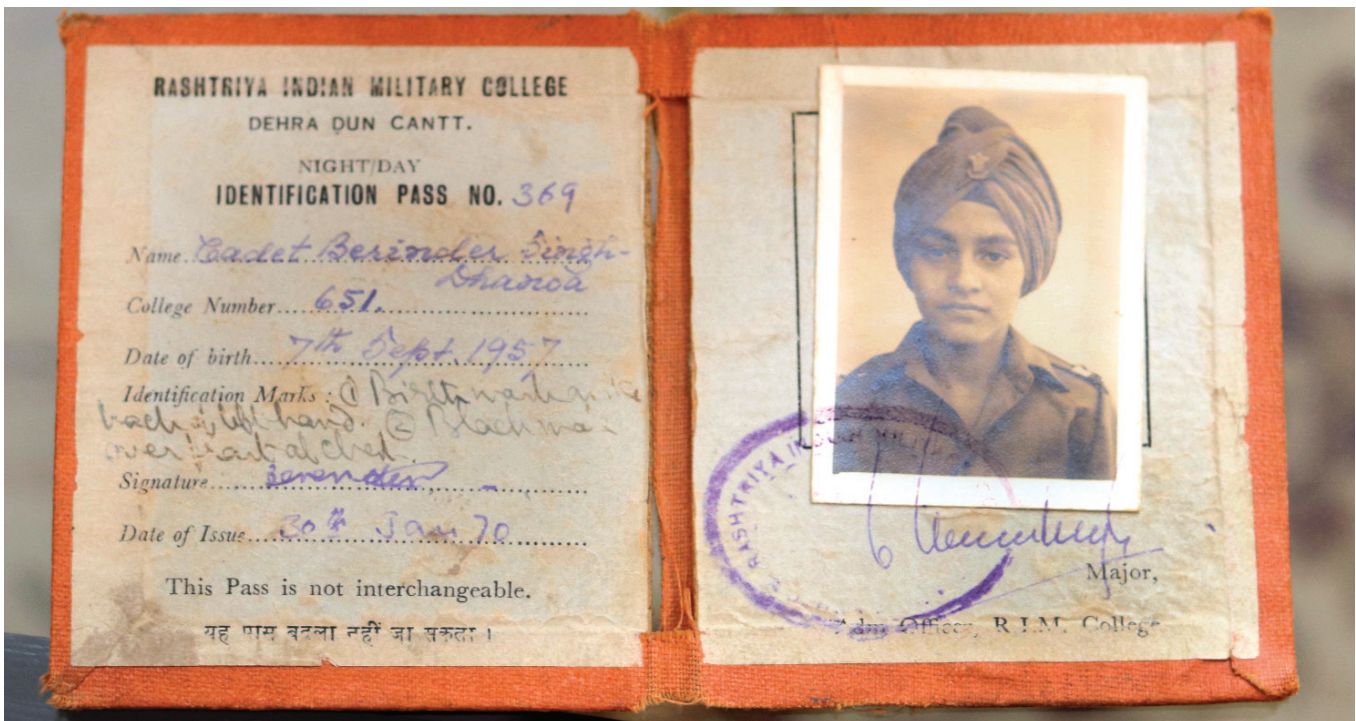 RASHTRIYA INDIAN MILITARY COLLEGE
DEHRA DUN CANTT.
NIGHT/DAY
IDENTIFICATION PASS NO. 369
Name. Cadet Berinder Singh-
Dhanoa
College Number... 651.
Date of birth... 7th Sept. 1957
Identification Marks : ① Birthmark on the
back of left hand. ② Black
over part of chest.
Signature... Berender
Date of Issue... 30th Jan 70
This Pass is not interchangeable.
यह पास बदला नहीं जा सकता ।
RASHTRIYA INDIAN MILIT
Major,
Adm Officer, R.I.M. College